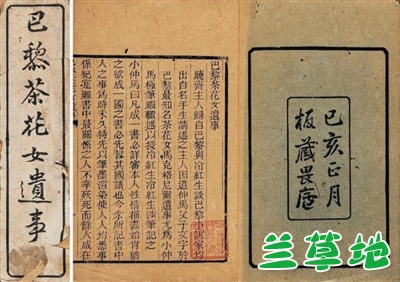 巴黎茶花女遺事
巴黎茶花女遺事
曉齋主人歸自巴黎與冷紅生談巴黎小說家均
出自名手生請述之主人因道仲馬父子文字於
巴黎最知名茶花女馬克格尼爾遺事尤爲小仲
馬極筆暇輒述以授冷紅生冷紅生涉筆記之
小仲馬曰凡成一書必詳審本人性情描畫始肖猶
之欲成一國之書必先習其國語也今余所記書中
人之事爲時未久特先以筆墨渲染使人人均悉事
係紀實雖書中最關係之人不幸夭死而餘人咸在
己亥正月
板藏畏廬
兰草地